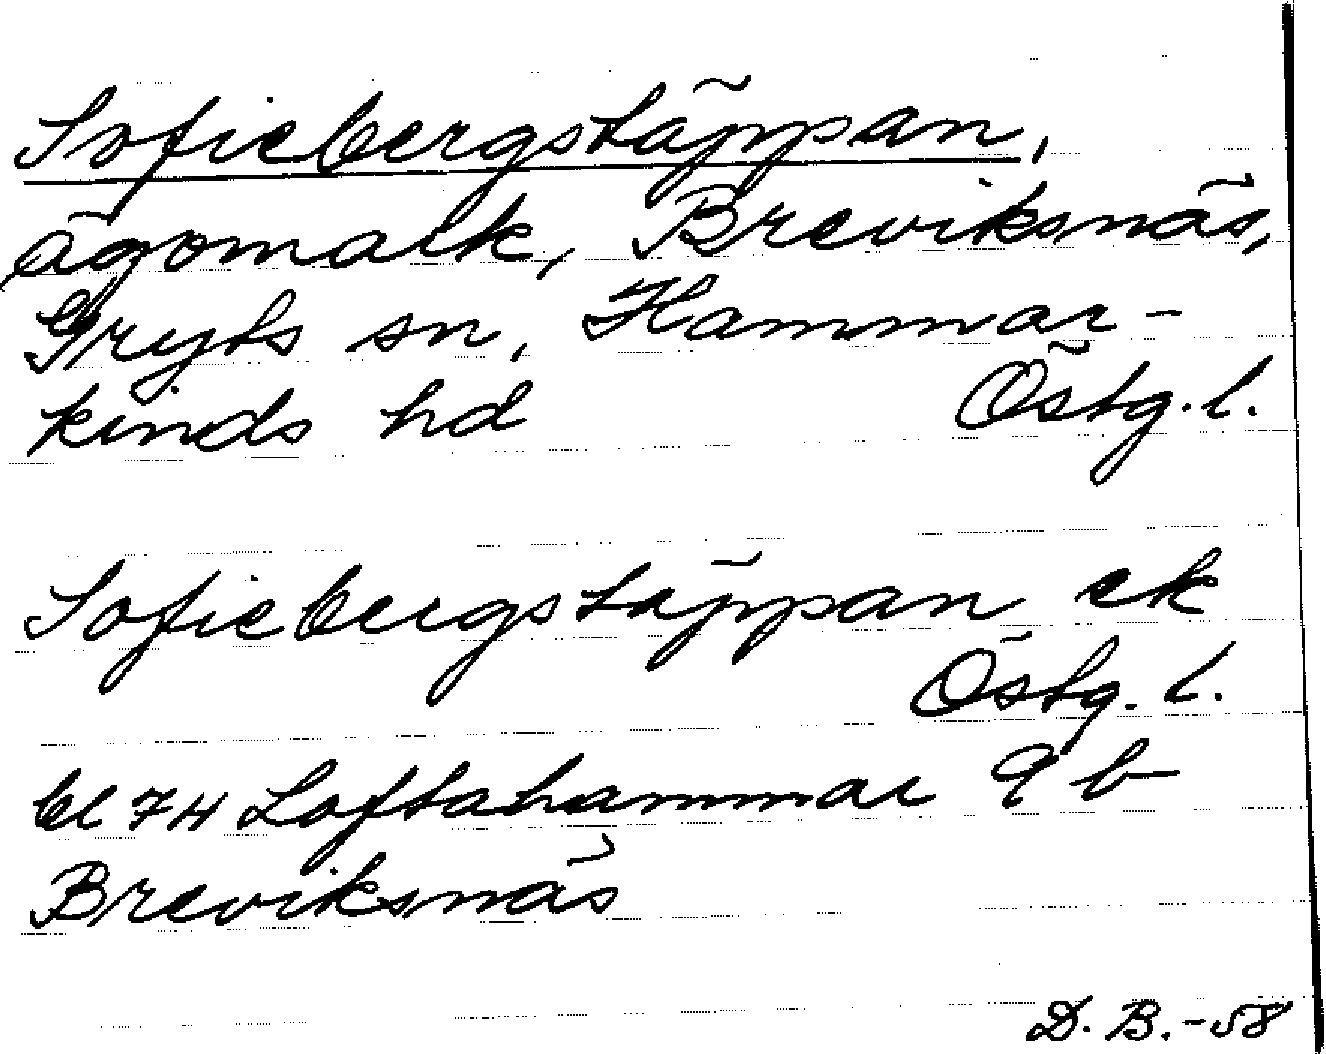 Sofiebergstäppan,
ägomark, Breviksnäs,
Gryts sn, Hammar-
kinds hd Östg. l.
Sofiebergstäppan ek
Östg. l.
bl 7H Loftahammar 9 b
Breviksnäs
D. B. -58